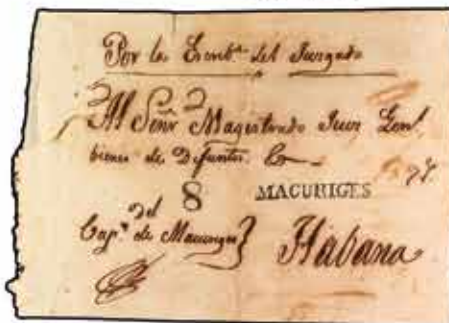 Por la Escrib.ª del Juzgado
Al Señr Magistrado Juez Genl.
bienes de Difuntos &
8
MACURIGES
Del
Cap.n de Macuriges }
Habana